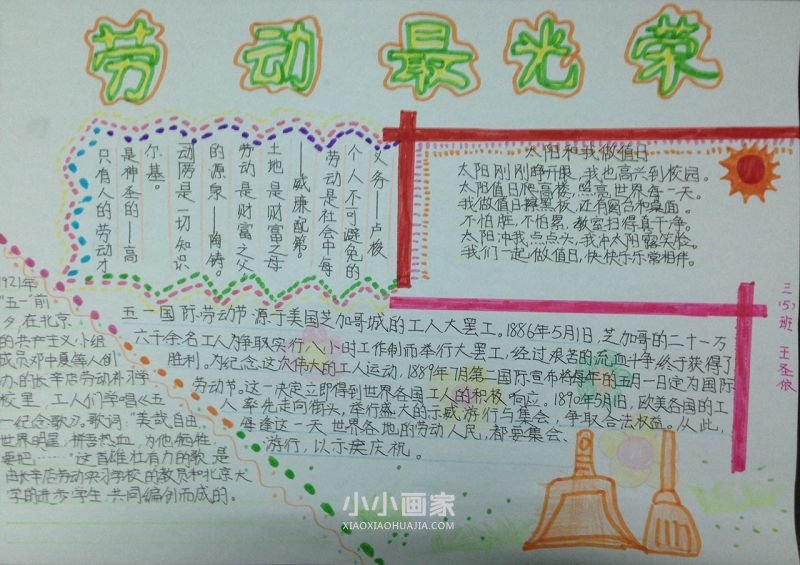 劳动最光荣
只有人的劳动才
是神圣的——高
尔基。
动劳是一切知识
的源泉——陶铸。
劳动是财富之父
土地是财富之母
——威廉配第。
劳动是社会中每
个人不可避免的
义务——卢梭
太阳和我做值日
太阳刚刚睁开眼,我也高兴到校园。
太阳值日爬高楼,照亮世界每一天。
我做值日擦黑板,还有窗台和桌面。
不怕脏,不怕累,教室扫得真干净。
太阳冲我点点头,我冲太阳露笑脸。
我们一起做值日,快快乐乐常相伴。
三(5)班 王圣依
五一国际劳动节源于美国芝加哥城的工人大罢工。1886年5月1日,芝加哥的二十一万
六千余名工人为争取实行八小时工作制而举行大罢工,经过艰苦的流血斗争,终于获得了
胜利。为纪念这次伟大的工人运动,1889年7月第二国际宣布将每年的五月一日定为国际
劳动节。这一决定立即得到世界各国工人的积极响应。1890年5月1日,欧美各国的工
人率先走向街头,举行盛大的示威游行与集会,争取合法权益。从此,
每逢这一天世界各地的劳动人民,都要集会、
游行,以示庆祝。
1921年
"五一"前
夕,在北京
的共产主义小组
成员邓中夏等人创
办的长辛店劳动补习学
校里,工人们学唱《五
一纪念歌》。歌词:"美哉自由,
世界明星,拼吾热血,为他牺牲,
要把……"这首雄壮有力的歌是
由长辛店劳动实习学校的教员和北京大
学的进步学生共同编创而成的。
小小画家
XIAOXIAOHUAJIA.COM